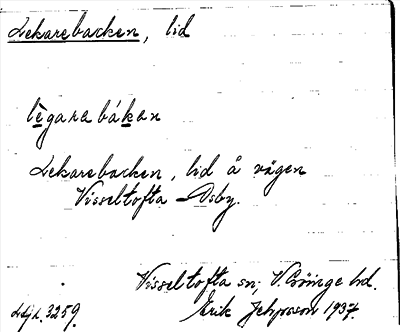 Lekarebacken, lid
lègara bákan
Lekarebacken, lid å vägen
Visseltofta–Osby.
Visseltofta sn, V. Göinge hd.
3259. Erik Jeppsson 1937.